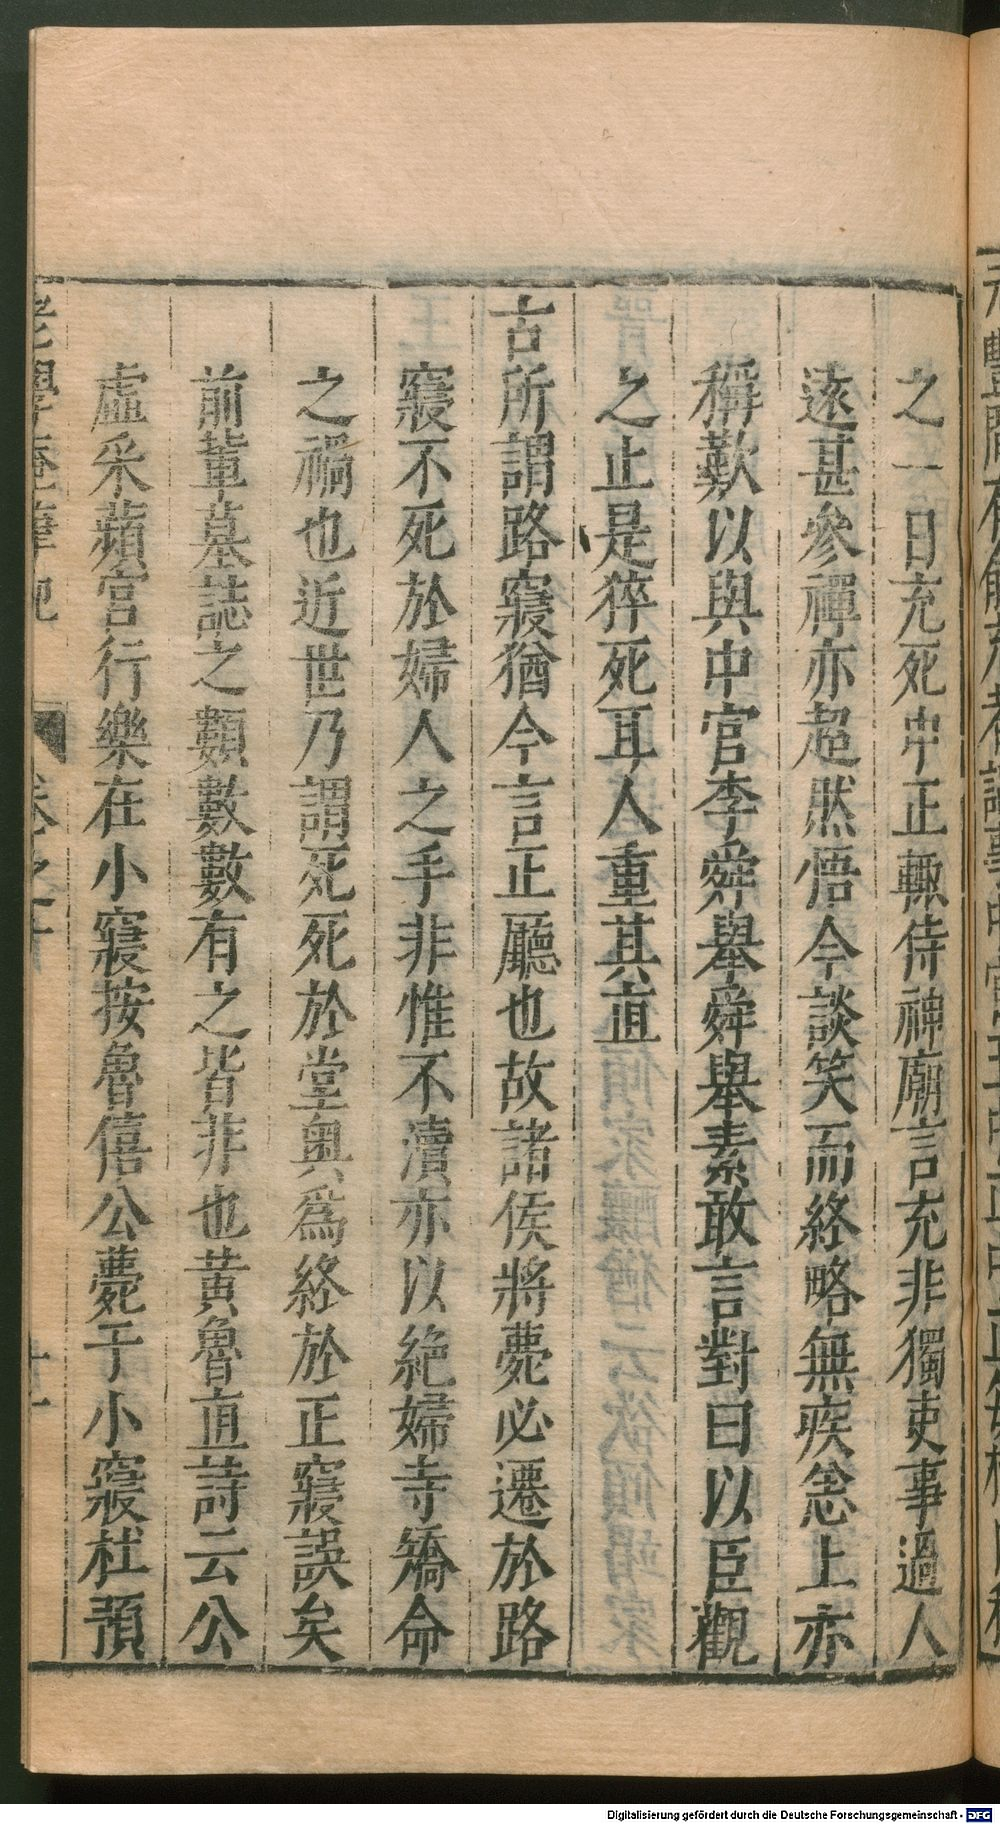 之一日充死中正輒侍神廟言充非獨吏事過人
遠甚參禪亦超然悟今談笑而終略無疾忩上亦
稱歎以與中官李舜舉舜舉素敢言對曰以臣觀
之止是猝死耳人重其直
古所謂路寢猶今言正廳也故諸侯將薨必遷於路
寢不死於婦人之手非惟不瀆亦以絶婦寺矯命
之禍也近世乃謂死死於堂奥爲終於正寢誤矣
前軰墓誌之類數數有之皆非也黃魯直詩云公
虚采蘋宮行樂在小寢按魯僖公薨于小寢杜預
老學庵筆記 卷之十 十一
Digitalisierung gefördert durch die Deutsche Forschungsgemeinschaft - DFG